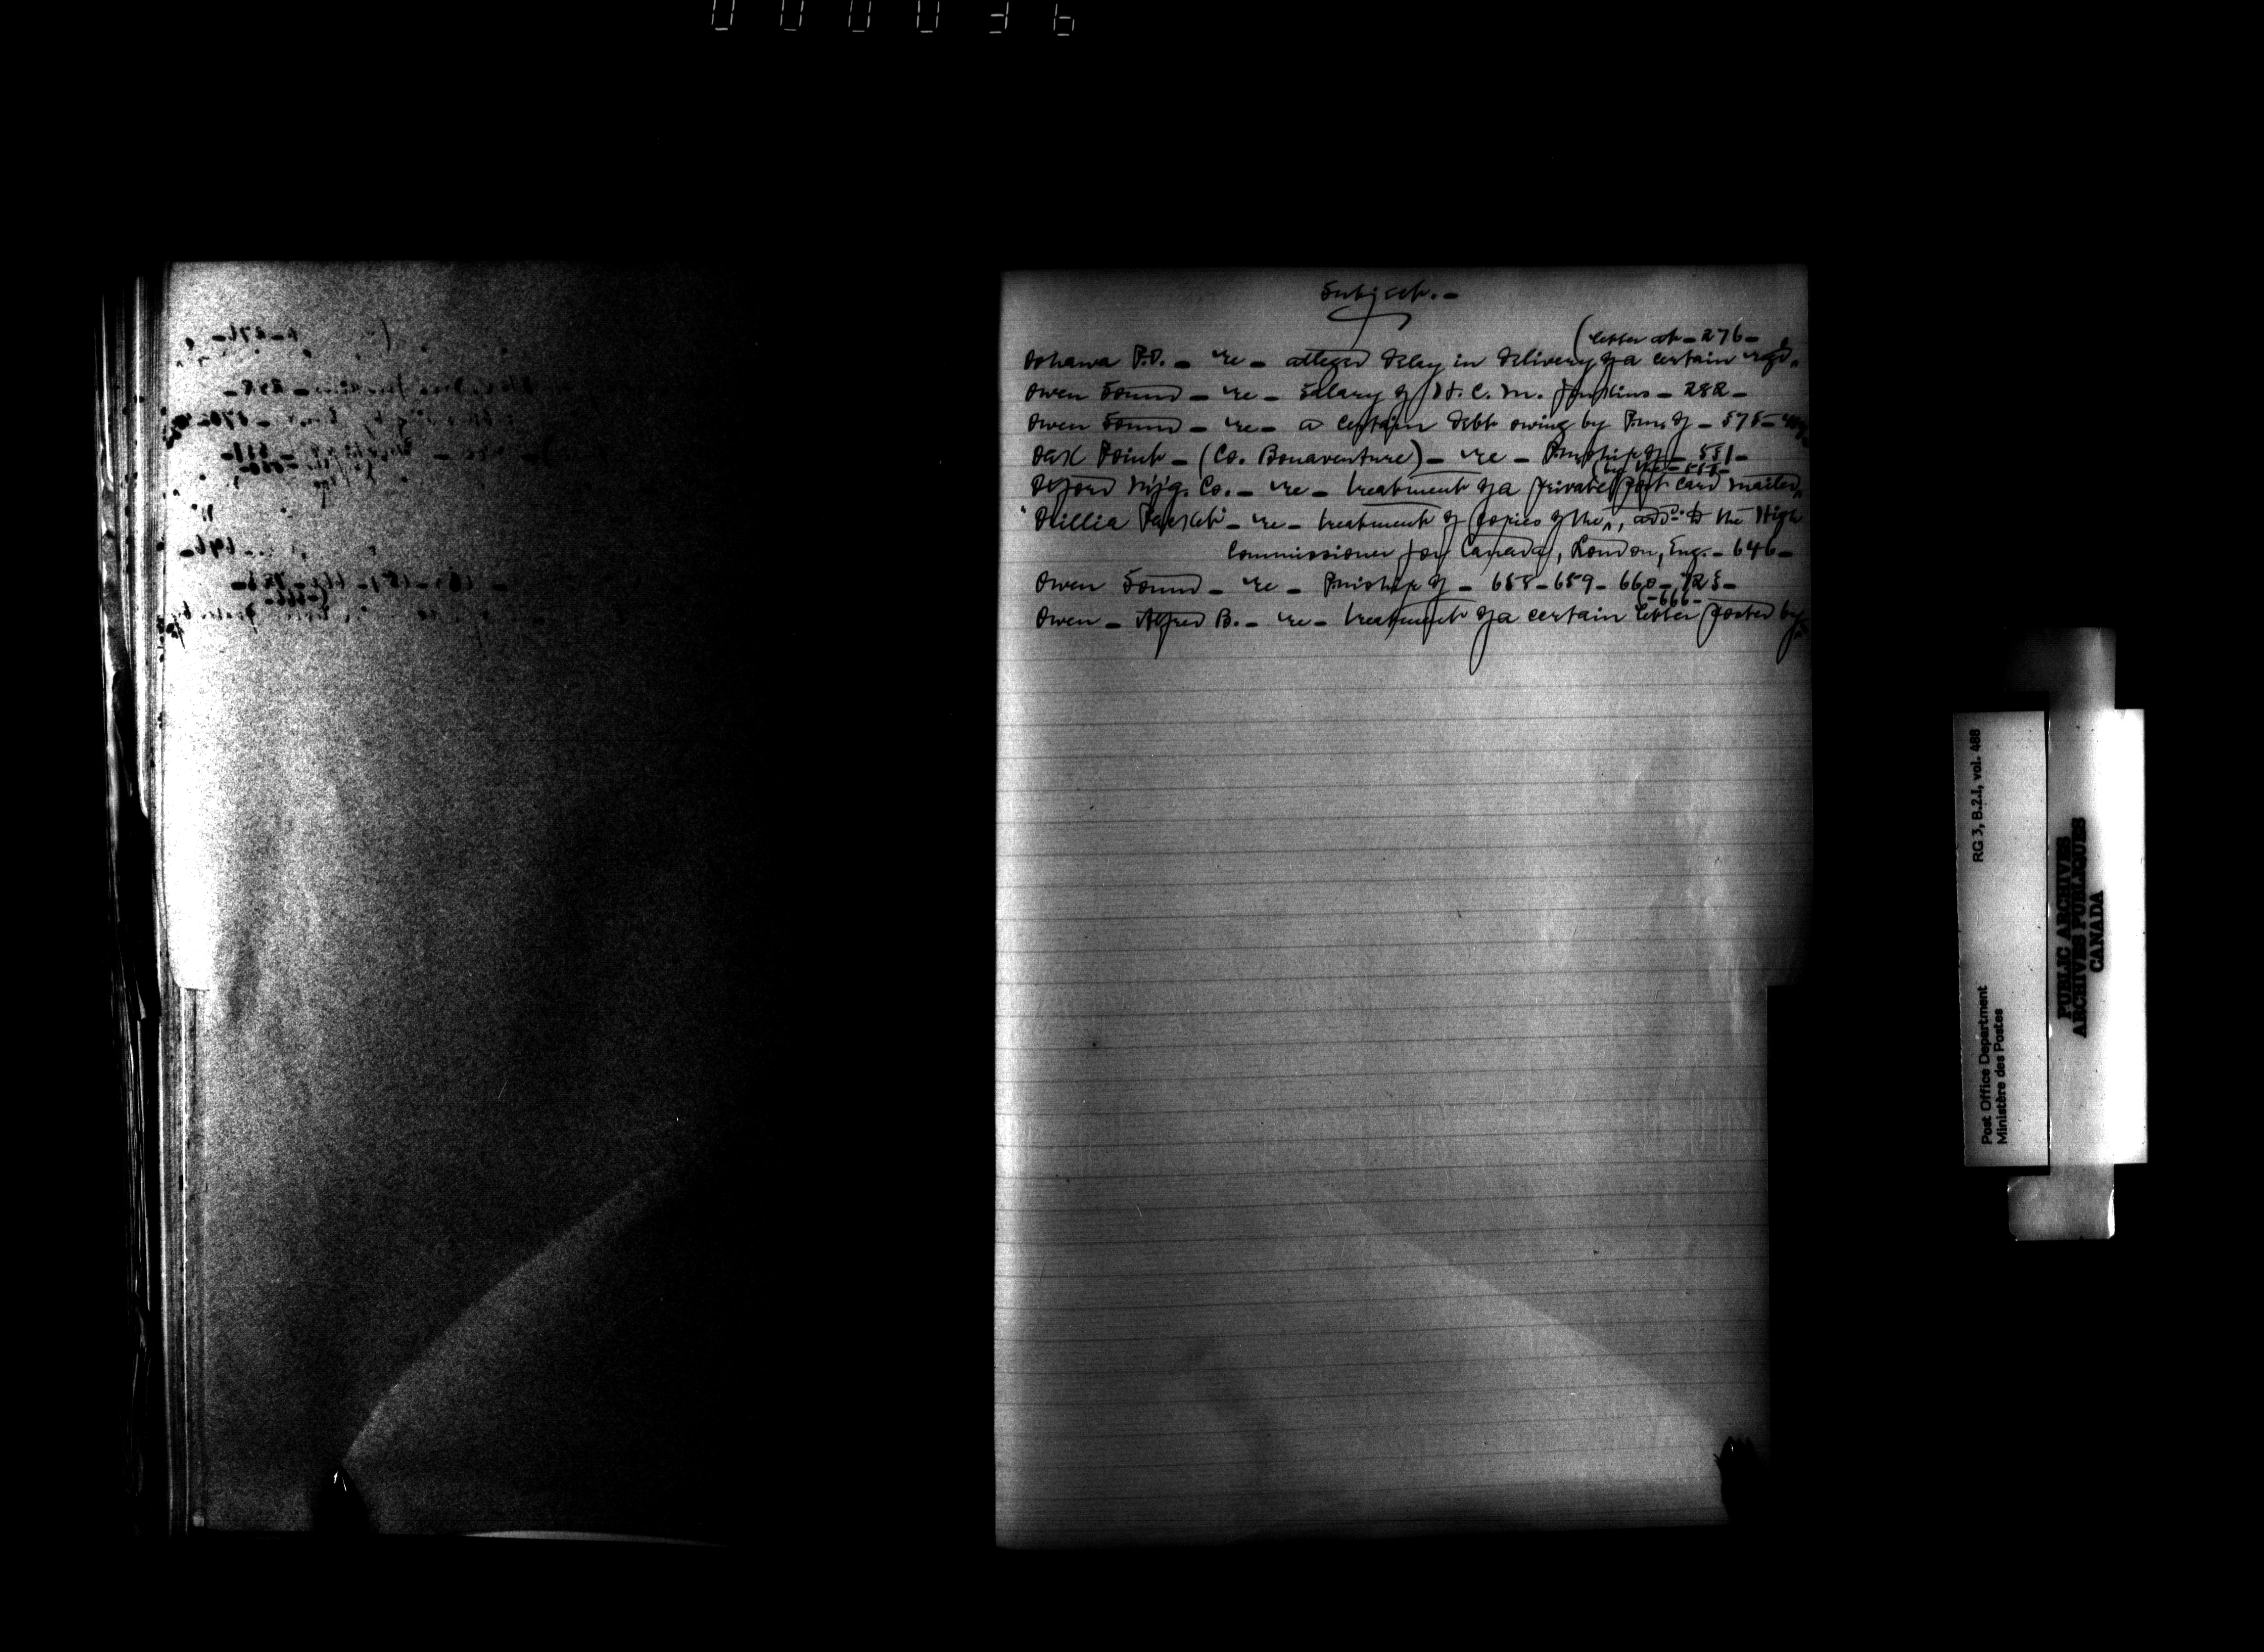 000036
Subject.-
(letter at - 276 -
Oshawa P.O. - re - alleged delay in delivery of a certain regd.
Owen Sound - re - Salary of H. C. M. Jenkins - 282 -
Owen Sound - re - a certain debt owing by P.m. of - 575 -
Oak Point - (Co. Bonaventure) - re - P.mship of - 551 -
(by the - 555 -
Oxford M'f'g. Co. - re - treatment of a private post card mailed
Orillia Packet - re - treatment of copies of the, add. to the High
Commissioner for Canada, London, Eng. - 646 -
Owen Sound - re - P.mship of - 658 - 659 - 660 - 725 -
(- 666 -
Owen - Alfred B. - re - treatment of a certain letter posted by
RG 3, B.2.I, vol. 488
Post Office Department
Ministère des Postes
PUBLIC ARCHIVES
ARCHIVES PUBLIQUES
CANADA